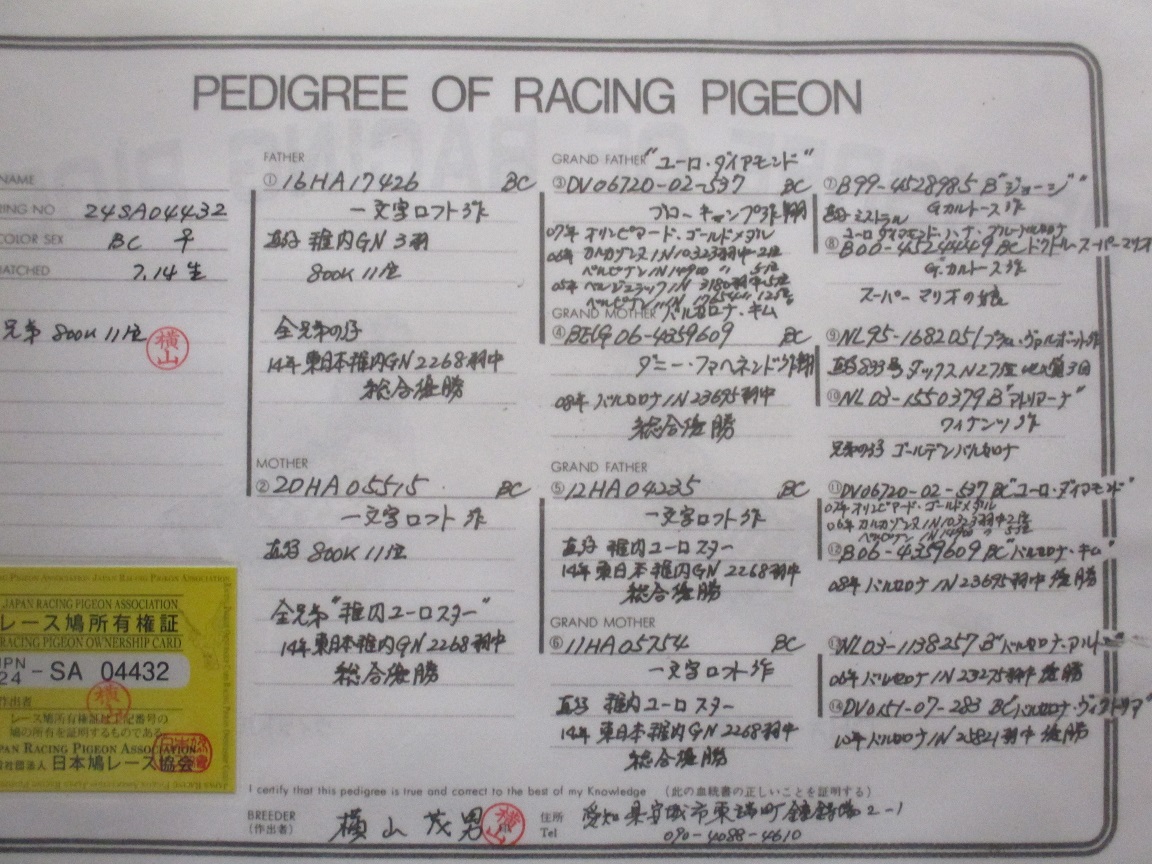 PEDIGREE OF RACING PIGEON
NAME
RING NO 24SA04432
COLOR SEX BC ♀
HATCHED 7.14生
兄弟 800K 11位
横山
FATHER
① 16HA17426 BC
一文字ロフト作
直仔 稚内GN 3羽
800K 11位
全兄弟の仔
14年 東日本稚内GN 2268羽中
総合優勝
MOTHER
② 20HA05515 BC
一文字ロフト作
直仔 800K 11位
全兄弟 "稚内ユーロスター"
14年 東日本稚内GN 2268羽中
総合優勝
GRAND FATHER "ユーロ・ダイアモンド"
③ DV06720-02-537 BC
ブローキャンプ作翔
07年 オリンピアード、ゴールドメダル
06年 カルカソンヌIN 10323羽中2位
ペルピナンIN 14900 〃 5位
05年 ベルジュラックIN 3180羽中5位
GRAND MOTHER バルセロナ・キム
④ BELG 06-4359609 BC
ダニー・ファヘネンド作翔
08年 バルセロナIN 23695羽中
総合優勝
GRAND FATHER
⑤ 12HA04235 BC
一文字ロフト作
直仔 稚内ユーロスター
14年 東日本稚内GN 2268羽中
総合優勝
GRAND MOTHER
⑥ 11HA05754 BC
一文字ロフト作
直仔 稚内ユーロスター
14年 東日本稚内GN 2268羽中
総合優勝
⑦ B99-4528985 B "ジョージ"
G.カルトース作
直仔 ミストラル
ユーロダイヤモンド、ハーナ
⑧ B00-4524449 BC ドクトル・スーパーマリオ
G.カルトース作
スーパーマリオの娘
⑨ NL95-1682051
直仔 833号 ダックスN27位
⑩ NL03-1550379 B "アドリアーナ"
ワイナンツ作
兄弟の仔 ゴールデンバルセロナ
⑪ DV06720-02-537 BC "ユーロ・ダイアモンド"
07年 オリンピアード・ゴールドメダル
06年 カルカソンヌIN 10323羽中2位
ペルピナンIN 14900 〃 5位
⑫ B06-4359609 BC "バルセロナ・キム"
08年 バルセロナIN 23695羽中 優勝
⑬ NL03-1138257 B "バルセロナ・アルト
06年 バルセロナIN 23275羽中 優勝
⑭ DV0151-07-283 BC "バルセロナ・ヴィクトリア"
10年 バルセロナIN 25821羽中 優勝
JAPAN RACING PIGEON ASSOCIATION
レース鳩所有権証
RACING PIGEON OWNERSHIP CARD
JPN
24 - SA 04432
作出者
横山
レース鳩所有権証は上記番号の
鳩の所有を証明するものである
JAPAN RACING PIGEON ASSOCIATION
社団法人 日本鳩レース協会
I certify that this pedigree is true and correct to the best of my Knowledge (此の血統書の正しいことを証明する)
BREEDER
(作出者) 横山茂男 横山
住所 愛知県安城市東端町鐘鋳場2-1
Tel 090-4088-4610